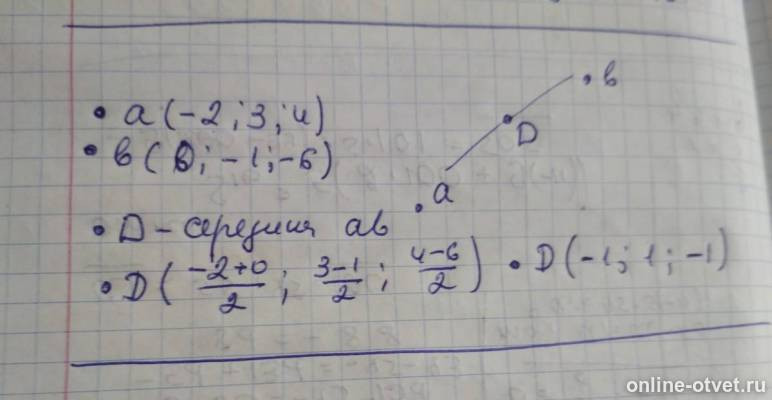 • a (-2; 3; 4)
• в (0; -1; -6)
в
D
a
• D - середина ав
• D ( (-2+0)/2 ; (3-1)/2 ; (4-6)/2 ) • D (-1; 1; -1)
online-otvet.ru